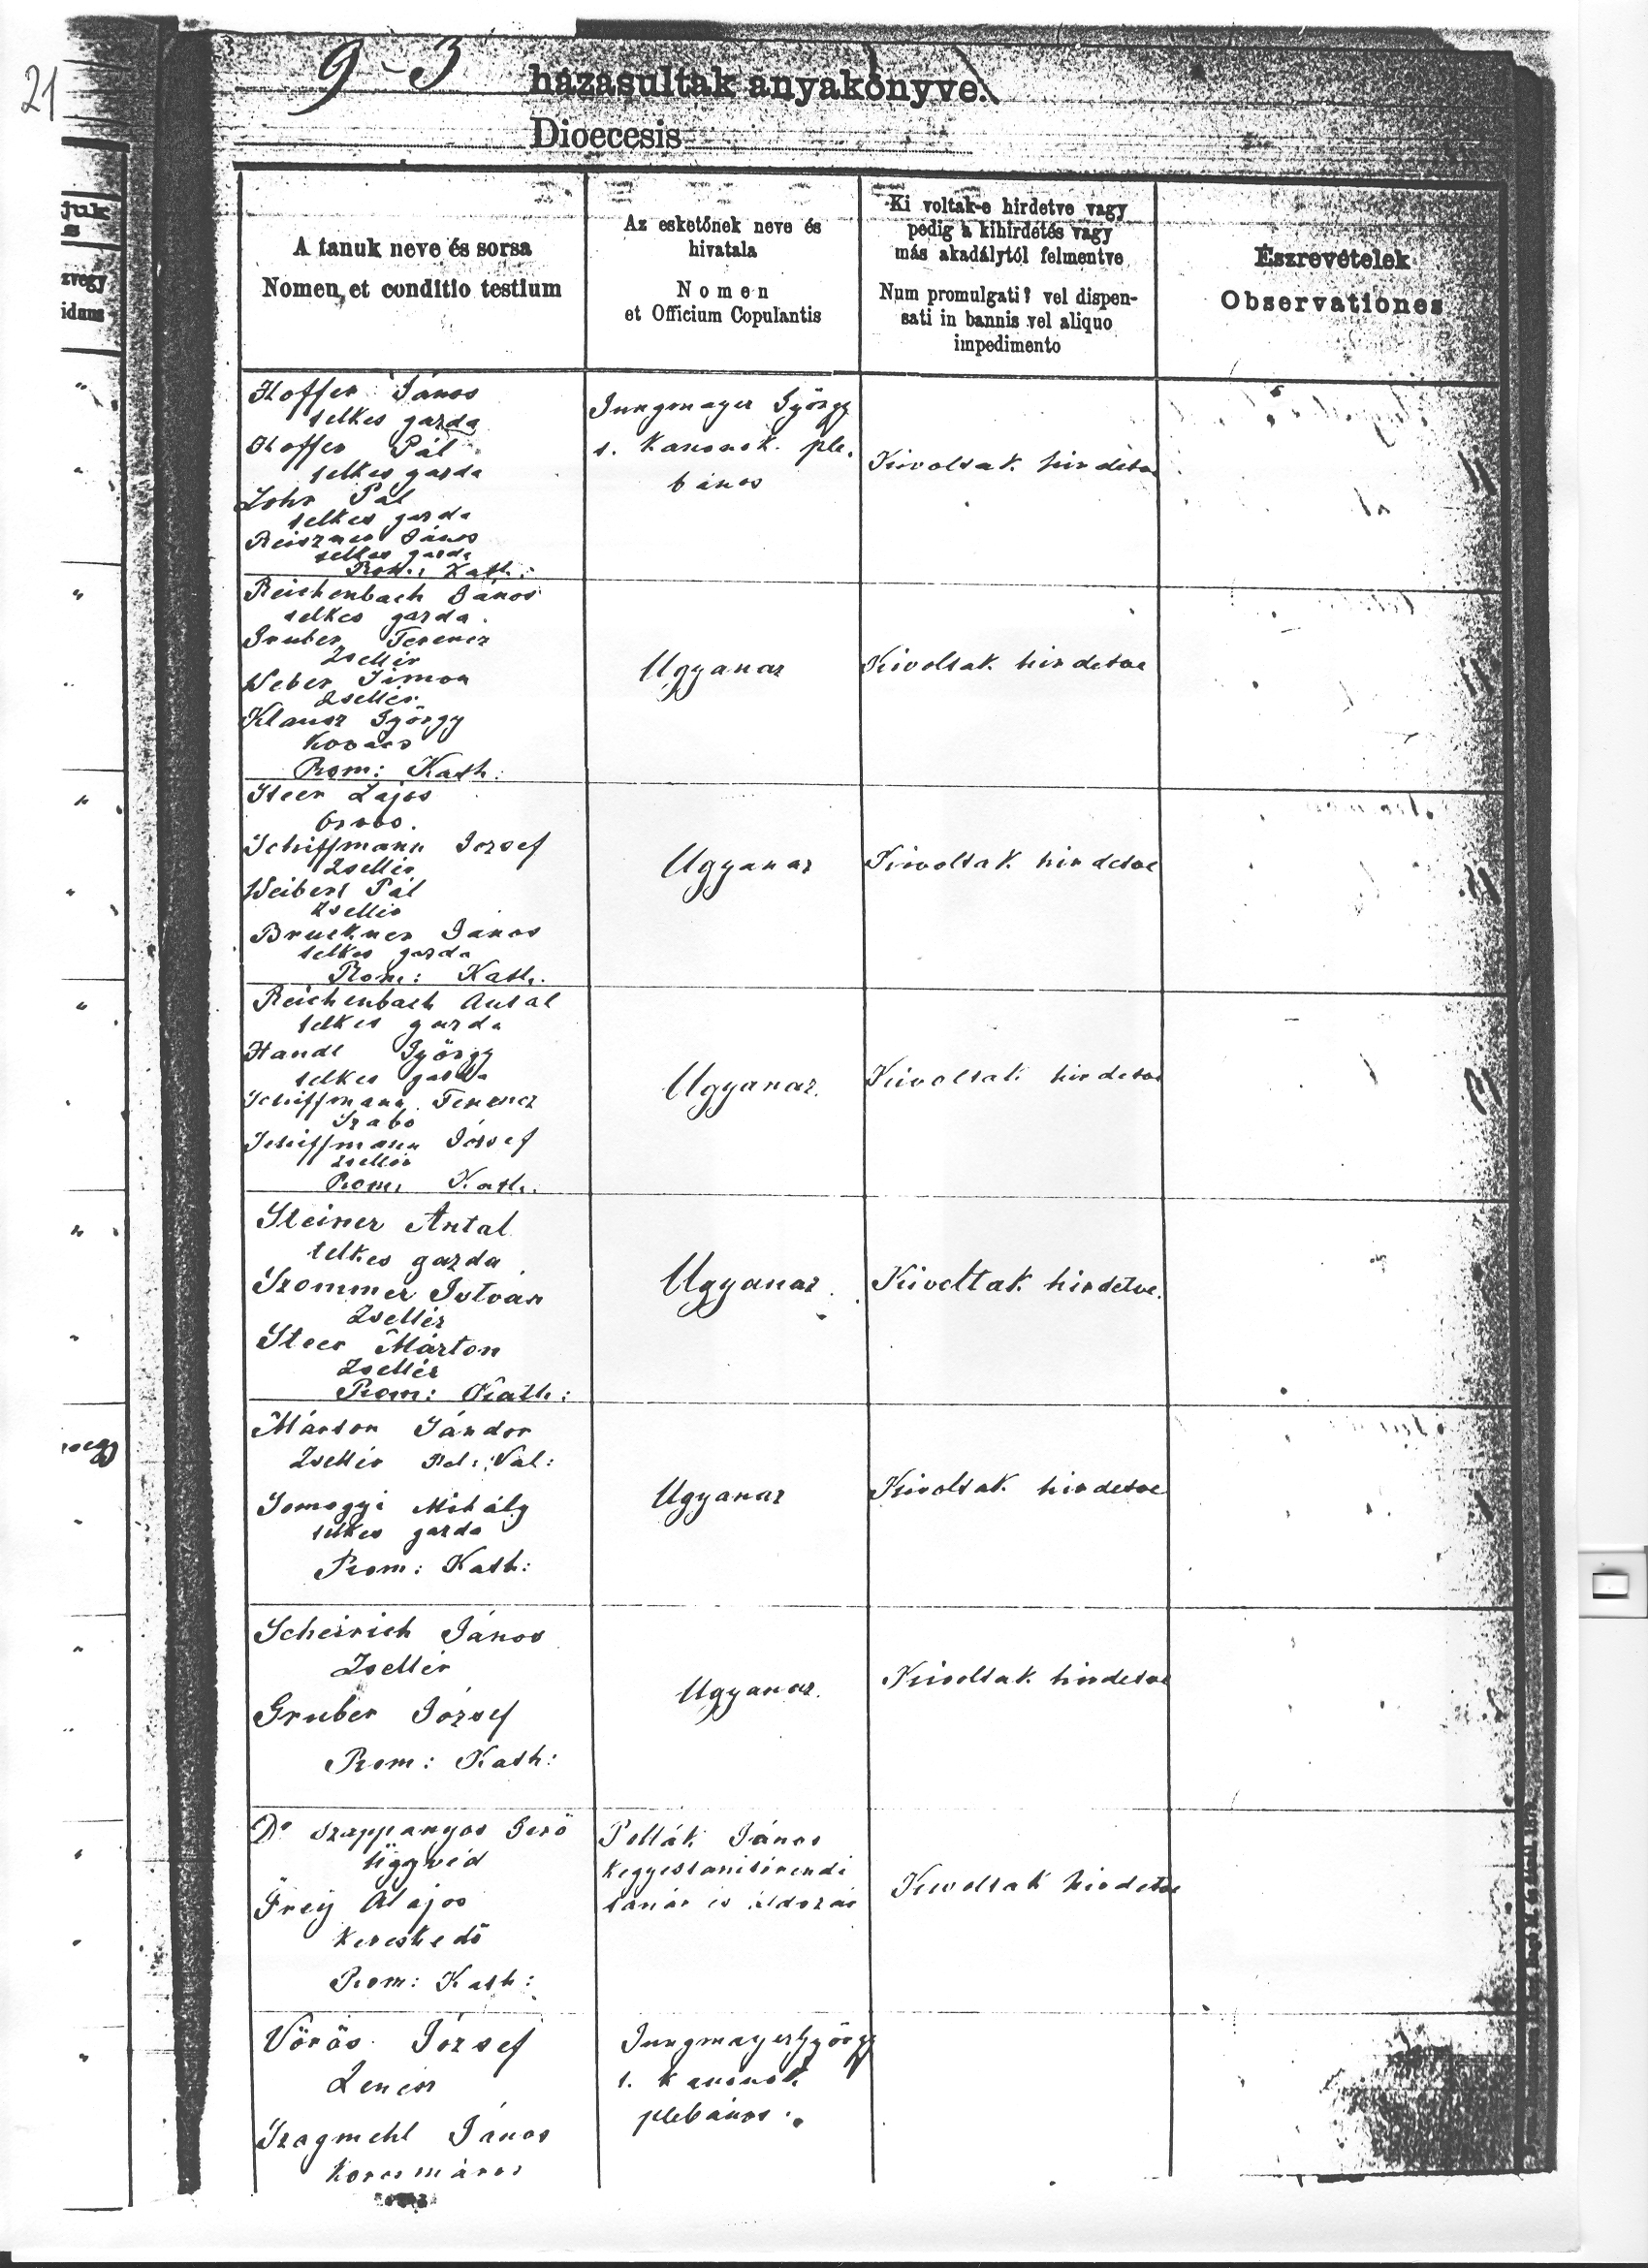 21
9-3
házasultak anyakönyve.
Dioecesis
juk
s
zvegy
iduus
A tanuk neve és sorsa
Nomen et conditio testium
Az esketőnek neve és
hivatala
Nomen
et Officium Copulantis
Ki voltak-e hirdetve vagy
pedig a kihirdetés vagy
más akadálytól felmentve
Num promulgati? vel dispen-
sati in bannis vel aliquo
impedimento
Észrevételek
Observationes
Hoffer János
telkes gazda
Hoffer Pál
telkes gazda
Lohr Pál
telkes gazda
Reiszner János
telkes gazda
Rom: Kath:
Jungmayer György
t. kanonok ple,
bános
Kivoltak hirdetve
Reichenbach János
telkes gazda.
Gruber Ferencz
Zsellér
Weber Simon
Zsellér.
Klausz György
Kovács
Rom: Kath:
Ugyanaz
Kivoltak hirdetve
Steer Lajos
Orvos.
Schiffmann József
Zsellér
Weibert Pál
Zsellér
Bruckner János
telkes gazda
Rom: Kath.
Ugyanaz
Kivoltak hirdetve
Reichenbach Antal
telkes gazda
Handl György
telkes gazda
Schiffmann Ferencz
Szabó
Schiffmann József
Zsellér
Rom: Kath.
Ugyanaz.
Kivoltak hirdetve
Steiner Antal
telkes gazda
Szommer István
Zsellér
Steer Márton
Zsellér
Rom: Kath:
Ugyanaz.
Kivoltak hirdetve.
Márton Sándor
Zsellér Hel: Val:
Somogyi Mihály
telkes gazda
Rom: Kath:
Ugyanaz
Kivoltak hirdetve
vegy
Scheirich János
Zsellér
Gruber József
Rom: Kath:
Ugyanaz.
Kivoltak hirdetve
Dr Szappanyos Jenő
Ügyvéd
Frey Alajos
kereskedő
Rom: Kath:
Pollák János
kegyestanitórendi
tanár és áldozár
Kivoltak hirdetve
Vörös József
Zenész
Szagmehl János
Korcsmáros
Jungmayer György
t. kanonok
plebános.